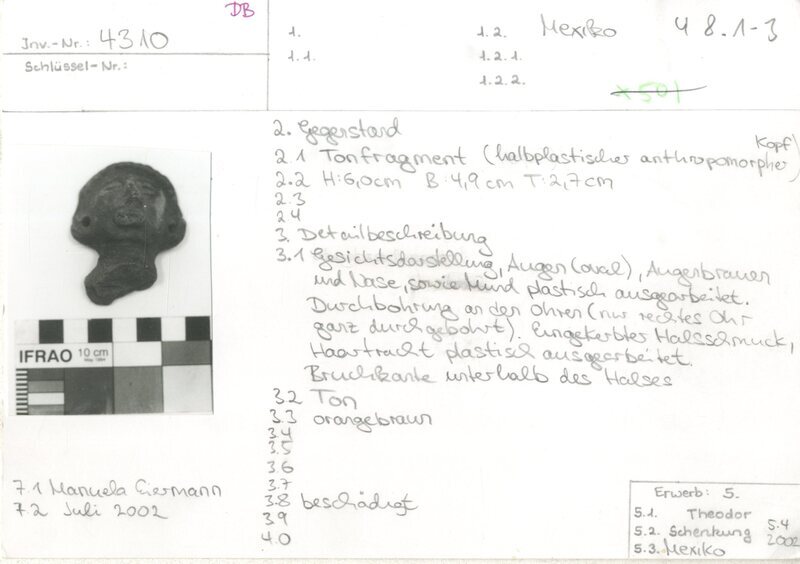 DB
Inv.-Nr.: 4310
Schlüssel-Nr.:
1.
1.1.
1.2. Mexiko
1.2.1.
1.2.2.
48.1-3
2. Gegenstand
2.1 Tonfragment (halbplastischer anthropomorpher Kopf)
2.2 H:6,0cm B:4,9cm T:2,7cm
2.3
2.4
3. Detailbeschreibung
3.1 Gesichtsdarstellung, Augen (oval), Augenbrauen
und Nase, sowie Mund plastisch ausgearbeitet.
Durchbohrung an den Ohren (nur rechtes Ohr
ganz durchgebohrt). Eingekerbter Halsschmuck,
Haartracht plastisch ausgearbeitet.
Bruchkante unterhalb des Halses
3.2 Ton
3.3 orangebraun
3.4
3.5
3.6
3.7
3.8 beschädigt
3.9
4.0
IFRAO 10 cm
May 1994
7.1 Manuela Eiermann
7.2 Juli 2002
Erwerb: 5.
5.1. Theodor
5.2. Schenkung
5.3. Mexiko
5.4
2002